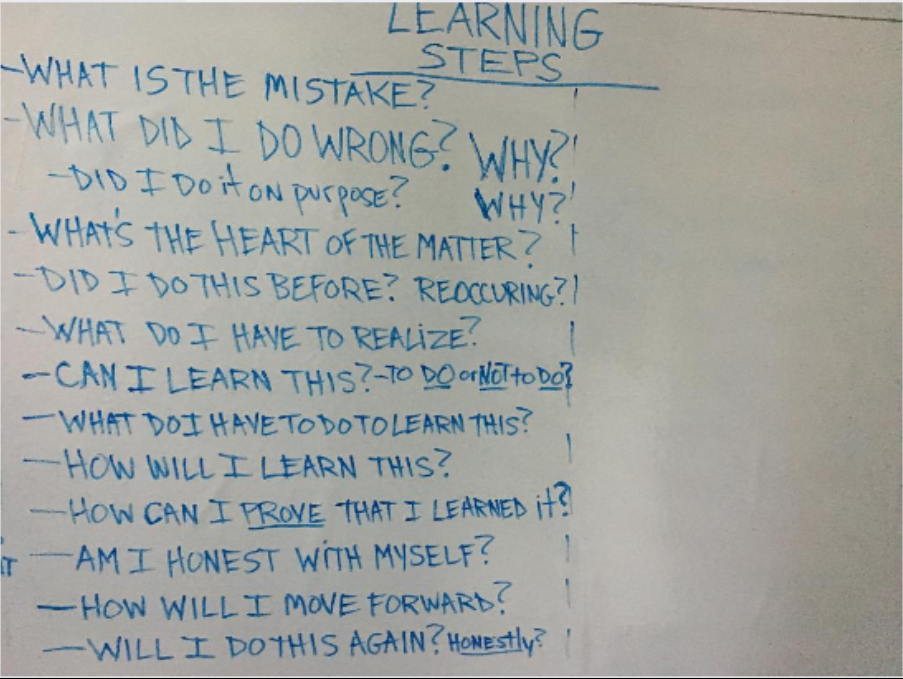 LEARNING
STEPS
-WHAT IS THE MISTAKE?
-WHAT DID I DO WRONG? WHY?
-DID I DO it ON purpose? WHY?
-WHAT'S THE HEART OF THE MATTER?
-DID I DO THIS BEFORE? REOCCURING?
-WHAT DO I HAVE TO REALIZE?
-CAN I LEARN THIS?-TO DO or NOT to DO?
-WHAT DO I HAVE TO DO TO LEARN THIS?
-HOW WILL I LEARN THIS?
-HOW CAN I PROVE THAT I LEARNED it?
-AM I HONEST WITH MYSELF?
-HOW WILL I MOVE FORWARD?
-WILL I DO THIS AGAIN? HONEStly?